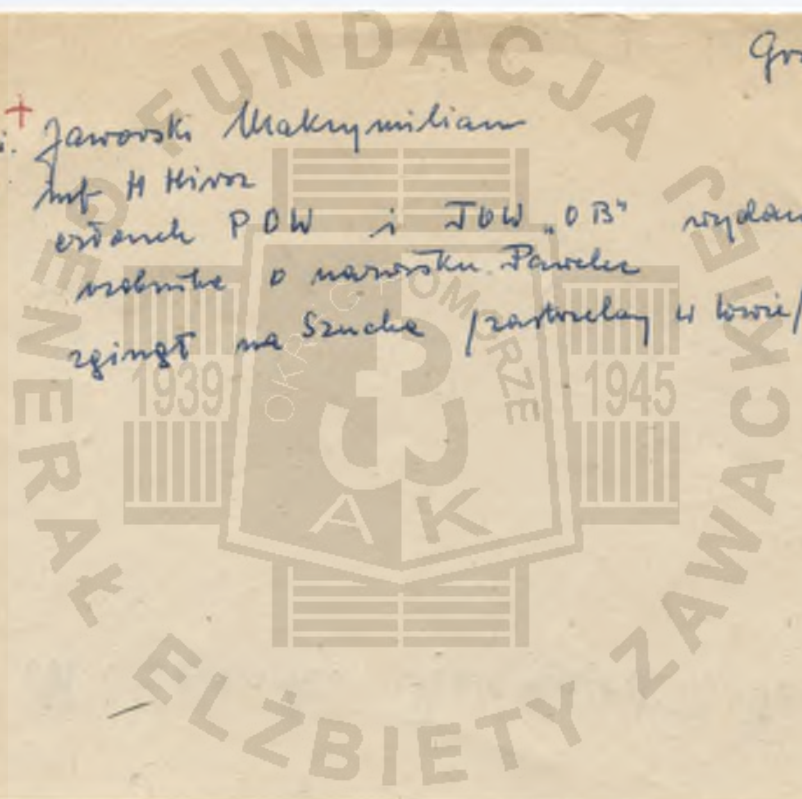 Gra
+
i. Jaworski Maksymilian
inf H
członek POW i TOW "OB" wydan
o nazwisku Pawelec
zginął na Szucha /zastrzelany w
FUNDACJA GENERAŁ ELŻBIETY ZAWACKIEJ
OKRĘG POMORZE
1939 1945
AK